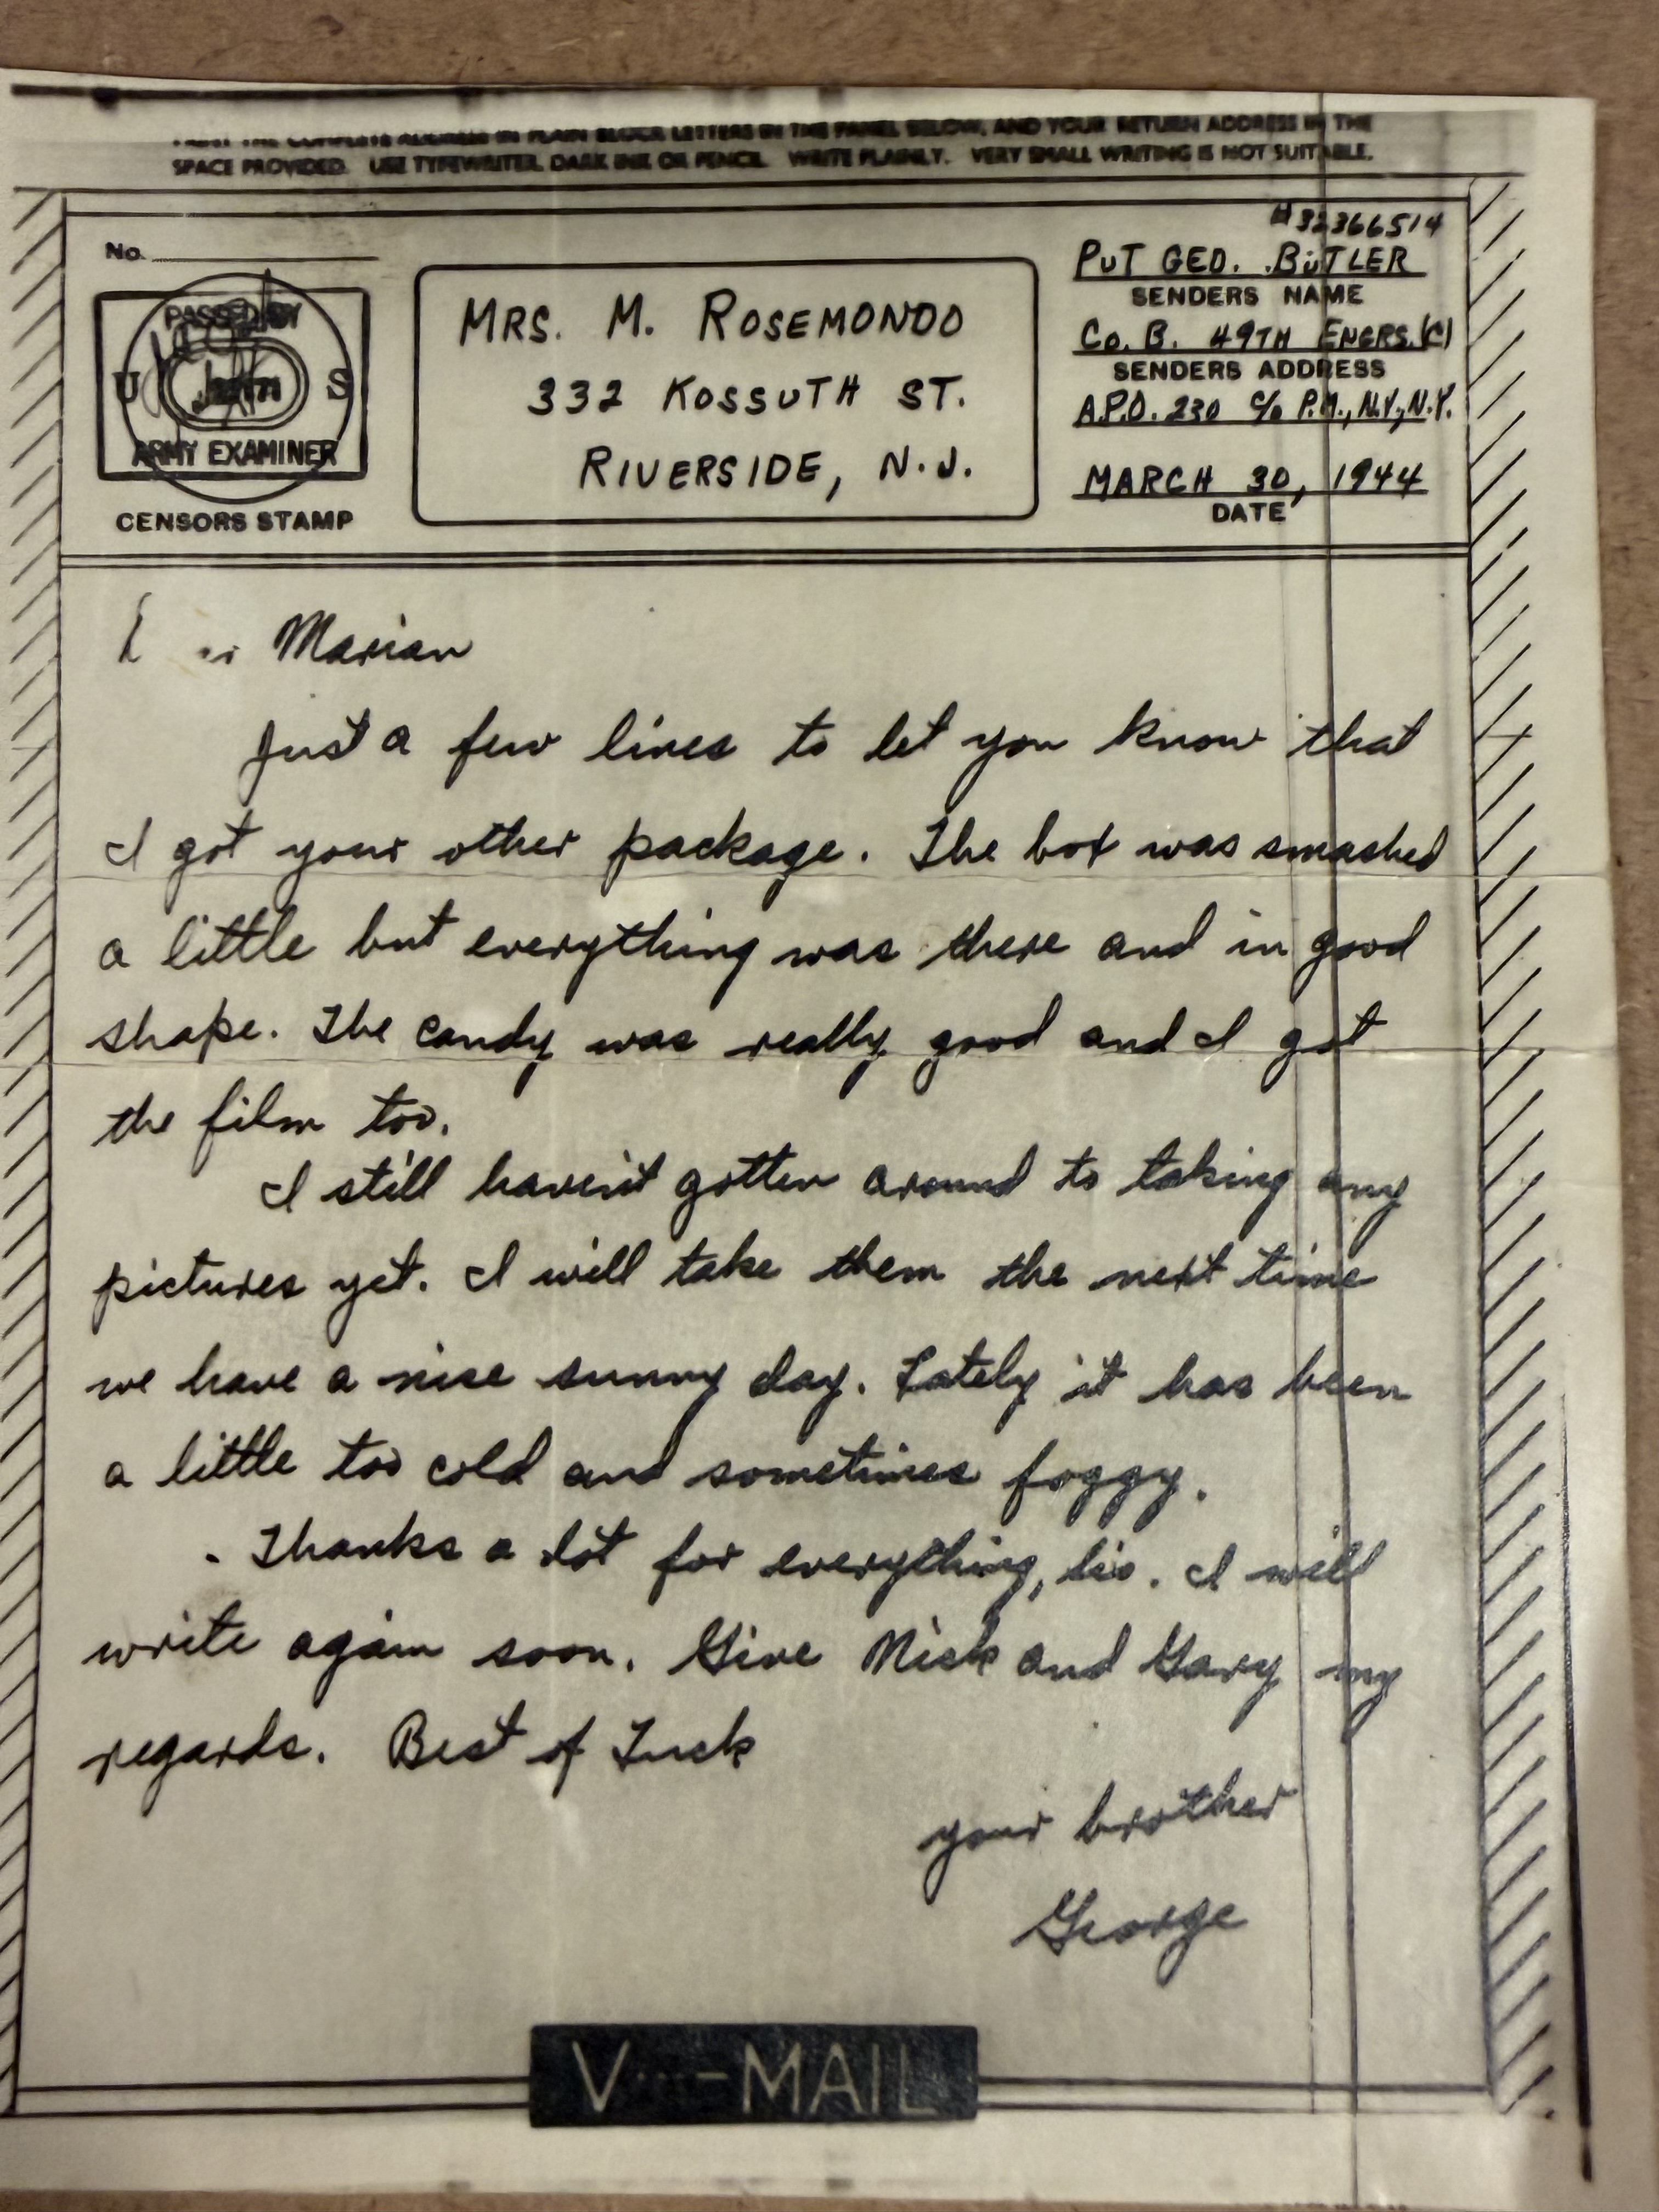 PRINT THE COMPLETE ADDRESS IN PLAIN BLOCK LETTERS IN THE PANEL BELOW, AND YOUR RETURN ADDRESS IN THE
SPACE PROVIDED. USE TYPEWRITER, DARK INK OR PENCIL. WRITE PLAINLY. VERY SMALL WRITING IS NOT SUITABLE.
No.
PASSED BY
U S
ARMY EXAMINER
CENSORS STAMP
MRS. M. ROSEMONDO
332 KOSSUTH ST.
RIVERSIDE, N.J.
#32366514
PVT GEO. BUTLER
SENDERS NAME
CO. B. 49TH ENGRS.(C)
SENDERS ADDRESS
A.P.O. 230 c/o P.M., N.Y., N.Y.
MARCH 30, 1944
DATE
Marian
Just a few lines to let you know that
I got your other package. The box was smashed
a little but everything was there and in good
shape. The candy was really good and I got
the film too.
I still haven't gotten around to taking any
pictures yet. I will take them the next time
we have a nice sunny day. Lately it has been
a little too cold and sometimes foggy.
Thanks a lot for everything, sis. I will
write again soon. Give Nick and Gary my
regards. Best of Luck
your brother
George
V···-MAIL